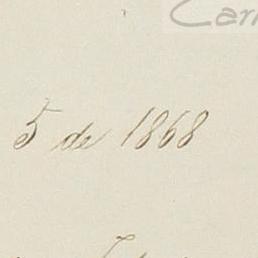 Car
5 de 1868